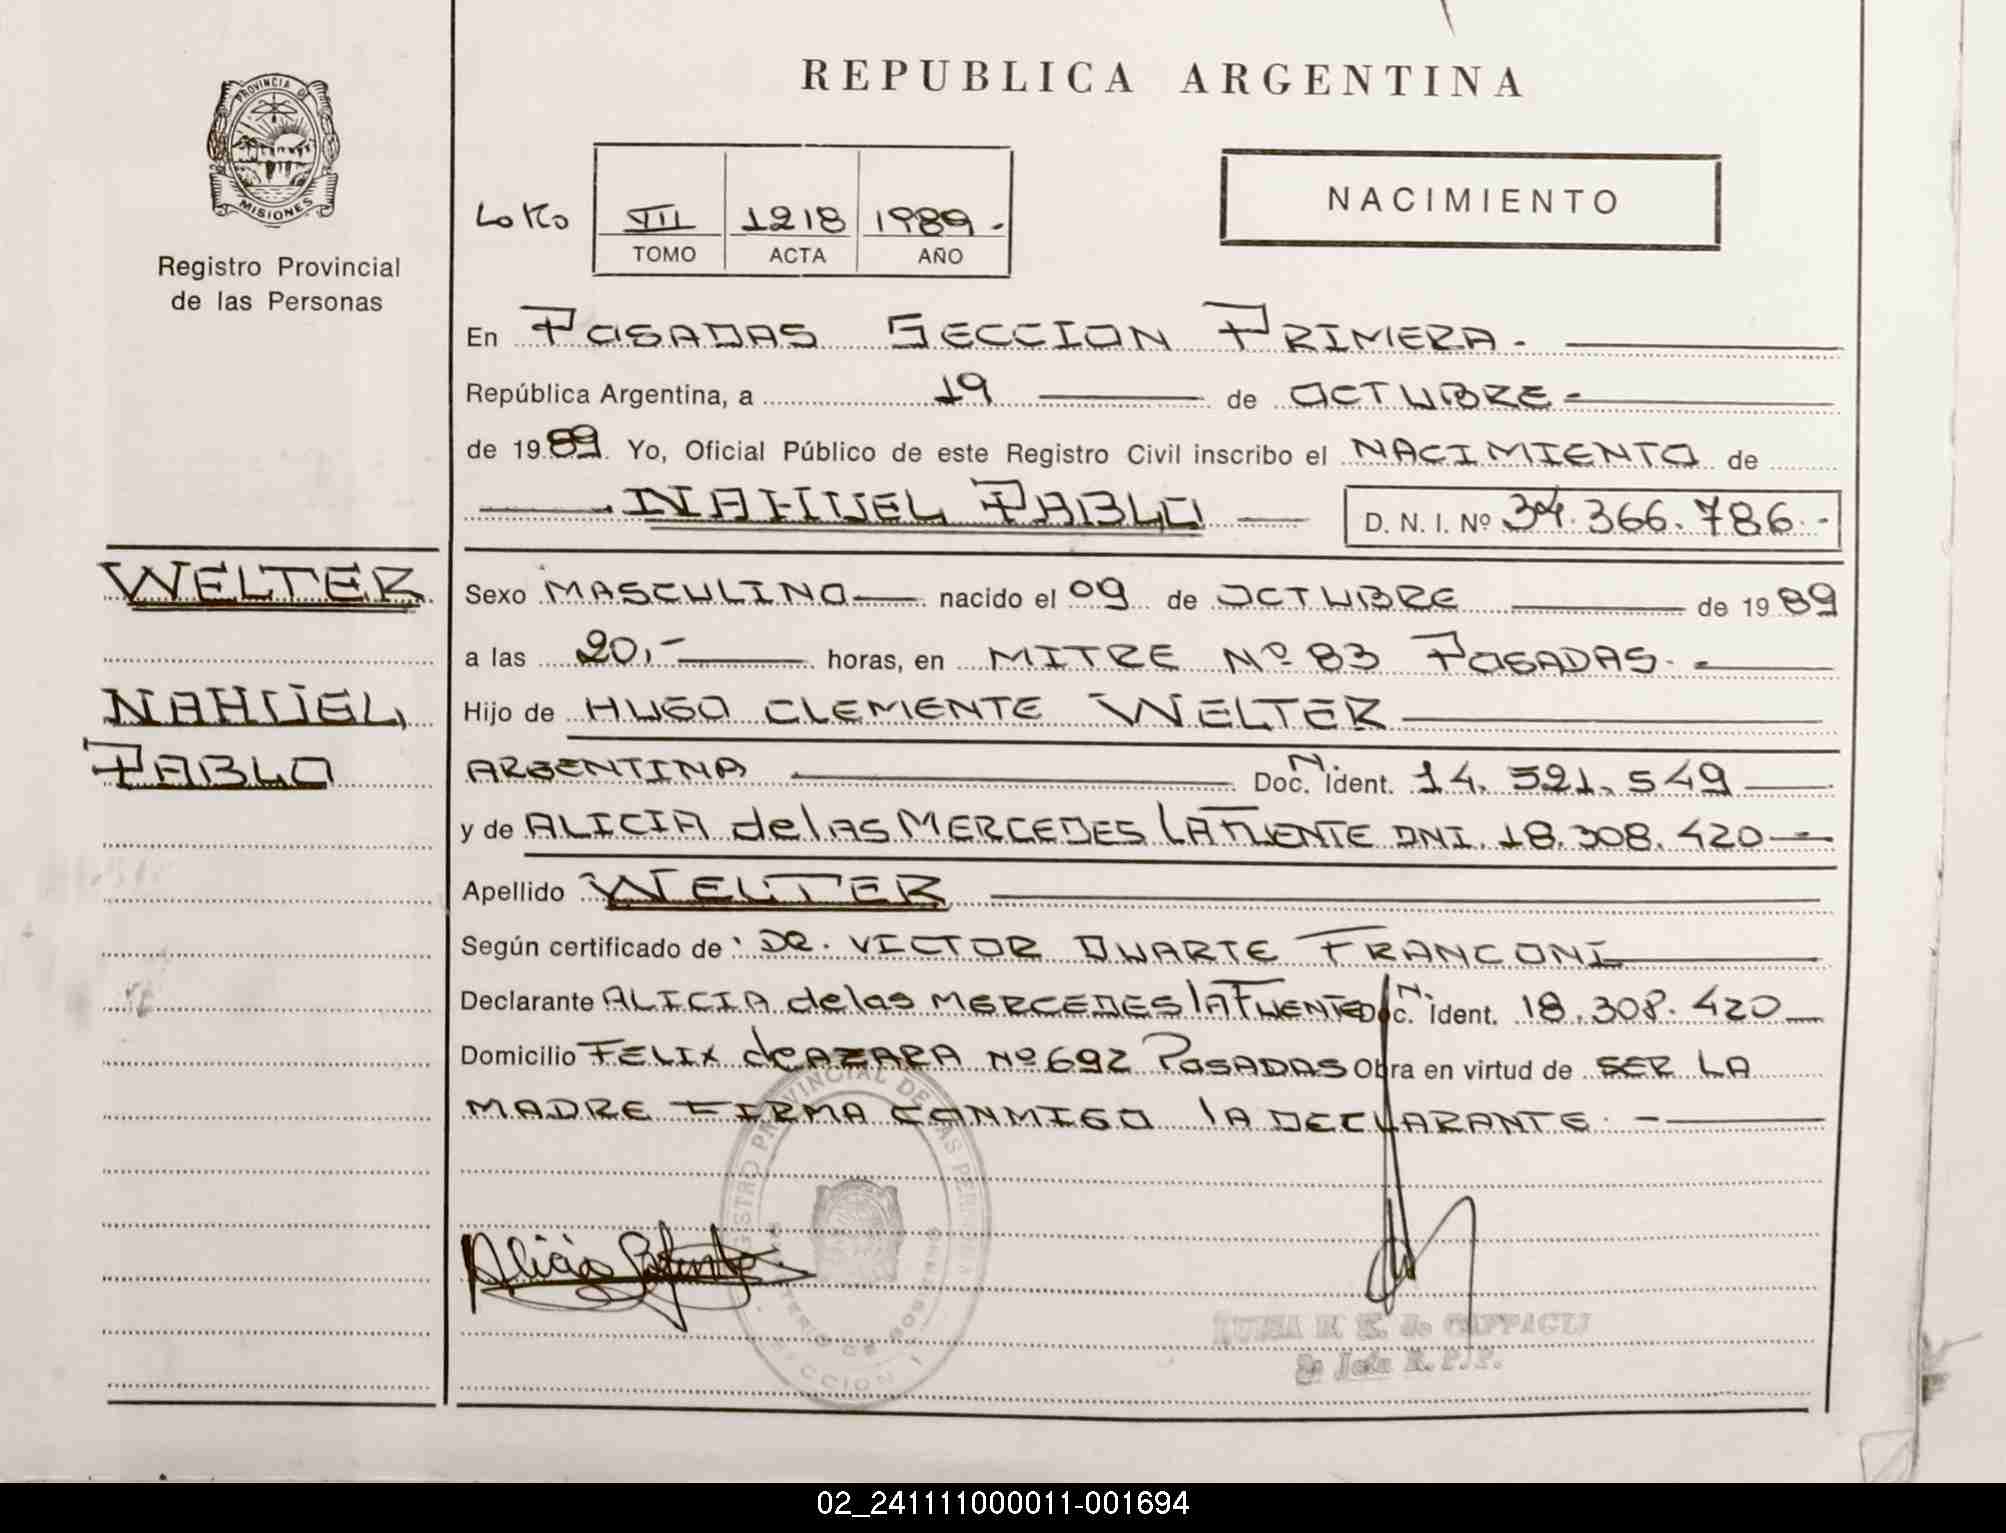 REPUBLICA ARGENTINA
PROVINCIA DE
MISIONES
Registro Provincial
de las Personas
NACIMIENTO
VII 1218 1989.-
TOMO ACTA AÑO
En POSADAS SECCION PRIMERA.-
República Argentina, a 19 de OCTUBRE-
de 1989. Yo, Oficial Público de este Registro Civil inscribo el NACIMIENTO de
NAHUEL PABLO D. N. I. Nº 34.366.786.-
WELTER
Sexo MASCULINO nacido el 09 de OCTUBRE de 1989
a las 20,- horas, en MITRE Nº 83 POSADAS.-
NAHUEL,
Hijo de HUGO CLEMENTE WELTER
PABLO
ARGENTINA Doc. N. Ident. 14.521.549
y de ALICIA de lAS MERCEDES LAFUENTE DNI. 18.308.420-
Apellido WELTER
Según certificado de: DR. VICTOR DUARTE FRANCONI
Declarante ALICIA de las MERCEDES lAFUENTE Doc. N. Ident. 18.308.420
Domicilio FELIX de AZARA Nº 692 POSADAS Obra en virtud de SER LA
MADRE FIRMA CONMIGO lA DECLARANTE.-
REGISTRO PROVINCIAL DE LAS PERSONAS
SECCION 1
Alicia Lafuente
2º Jefe R.P.P.
02_241111000011-001694